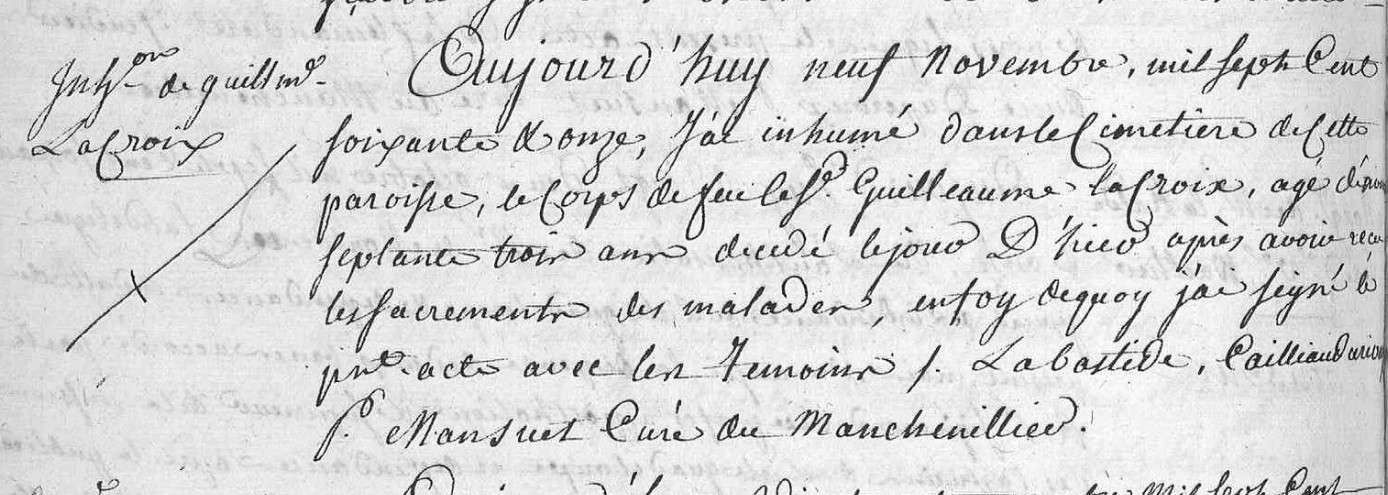 Inh.on de guillme.
LaCroix
Aujourd'huy neuf Novembre, mil sept Cent
soixante & onze, J'ai inhumé dans le Cimetiere de Cette
paroisse, le Corps de feu le Sr. Guilleaume laCroix, agé d'environ
septante trois ans decedé le jour D'hier après avoir recu
les sacrements des malades, en foy de quoy j'ai signé le
pnt. acte avec les Temoins /. Labastide, Cailliaud
f. Mansuet Curé du Manchenillier.